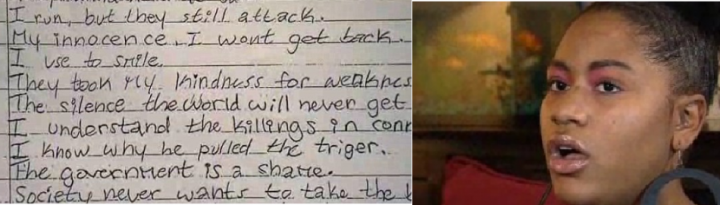 I run, but they still attack.
My innocence, I wont get back.
I use to smile.
They took my kindness for
The silence the world will never get
I understand the killings in
I know why he pulled the triger.
The government is a shame.
Society never wants to take the